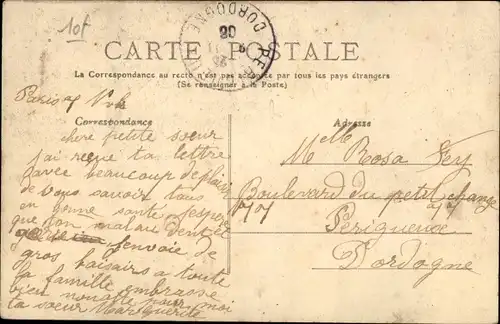 10f
DORDOGNE
CARTE POSTALE
La Correspondance au recto n'est pas acceptée par tous les pays étrangers
(Se renseigner à la Poste)
Paris
Correspondance
Adresse
chere petite sœur
j'ai reçue ta lettre
avec beaucoup de plaisir
de vous savoir tous
en bonne santé j'espere
que ton mal au dent et
j'envoie de
gros baisairs a toute
la famille embrasse
bien pour moi
ta sœur Marguerite
Melle Rosa Fey
Boulevard du petit change
77
Périgueux
Dordogne